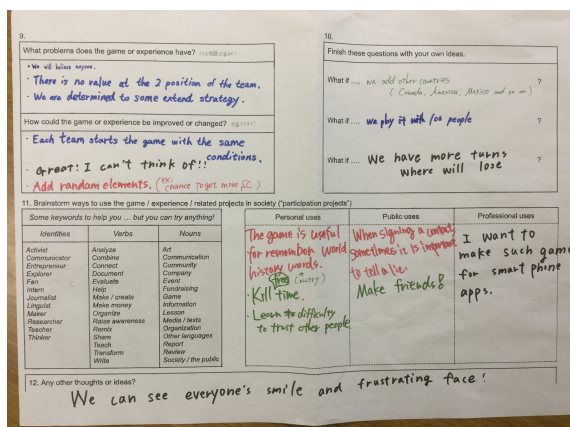 9.
What problems does the game or experience have?
• We will believe anyone.
• There is no value at the 2 position of the team.
• We are determined to some extend strategy.
How could the game or experience be improved or changed?
• Each team starts the game with the same conditions.
• Great! I can't think of!!
• Add random elements. (ex. chance to get more SC)
10.
Finish these questions with your own ideas.
What if .... we add other countries ?
(Canada, America, Mexico and so on)
What if .... we play it with 100 people ?
What if .... We have more turns ?
where will lose
11. Brainstorm ways to use the game / experience / related projects in society ("participation projects")
Some keywords to help you ... but you can try anything!
Identities Verbs Nouns
Activist Analyze Art
Communicator Combine Communication
Entrepreneur Connect Community
Explorer Document Company
Fan Evaluate Event
Intern Help Fundraising
Journalist Make / create Game
Linguist Make money Information
Maker Organize Lesson
Researcher Raise awareness Media / texts
Teacher Remix Organization
Thinker Share Other languages
Teach Report
Transform Review
Write Society / the public
Personal uses
The game is useful
for remember world
history words.
(country)
• Kill time.
• Learn difficulty
to trust other people.
Public uses
When signing a contract,
sometimes it is important
to tell a lie.
Make friends!
Professional uses
I want to
make such game
for smart phone
apps.
12. Any other thoughts or ideas?
We can see everyone's smile and frustrating face!